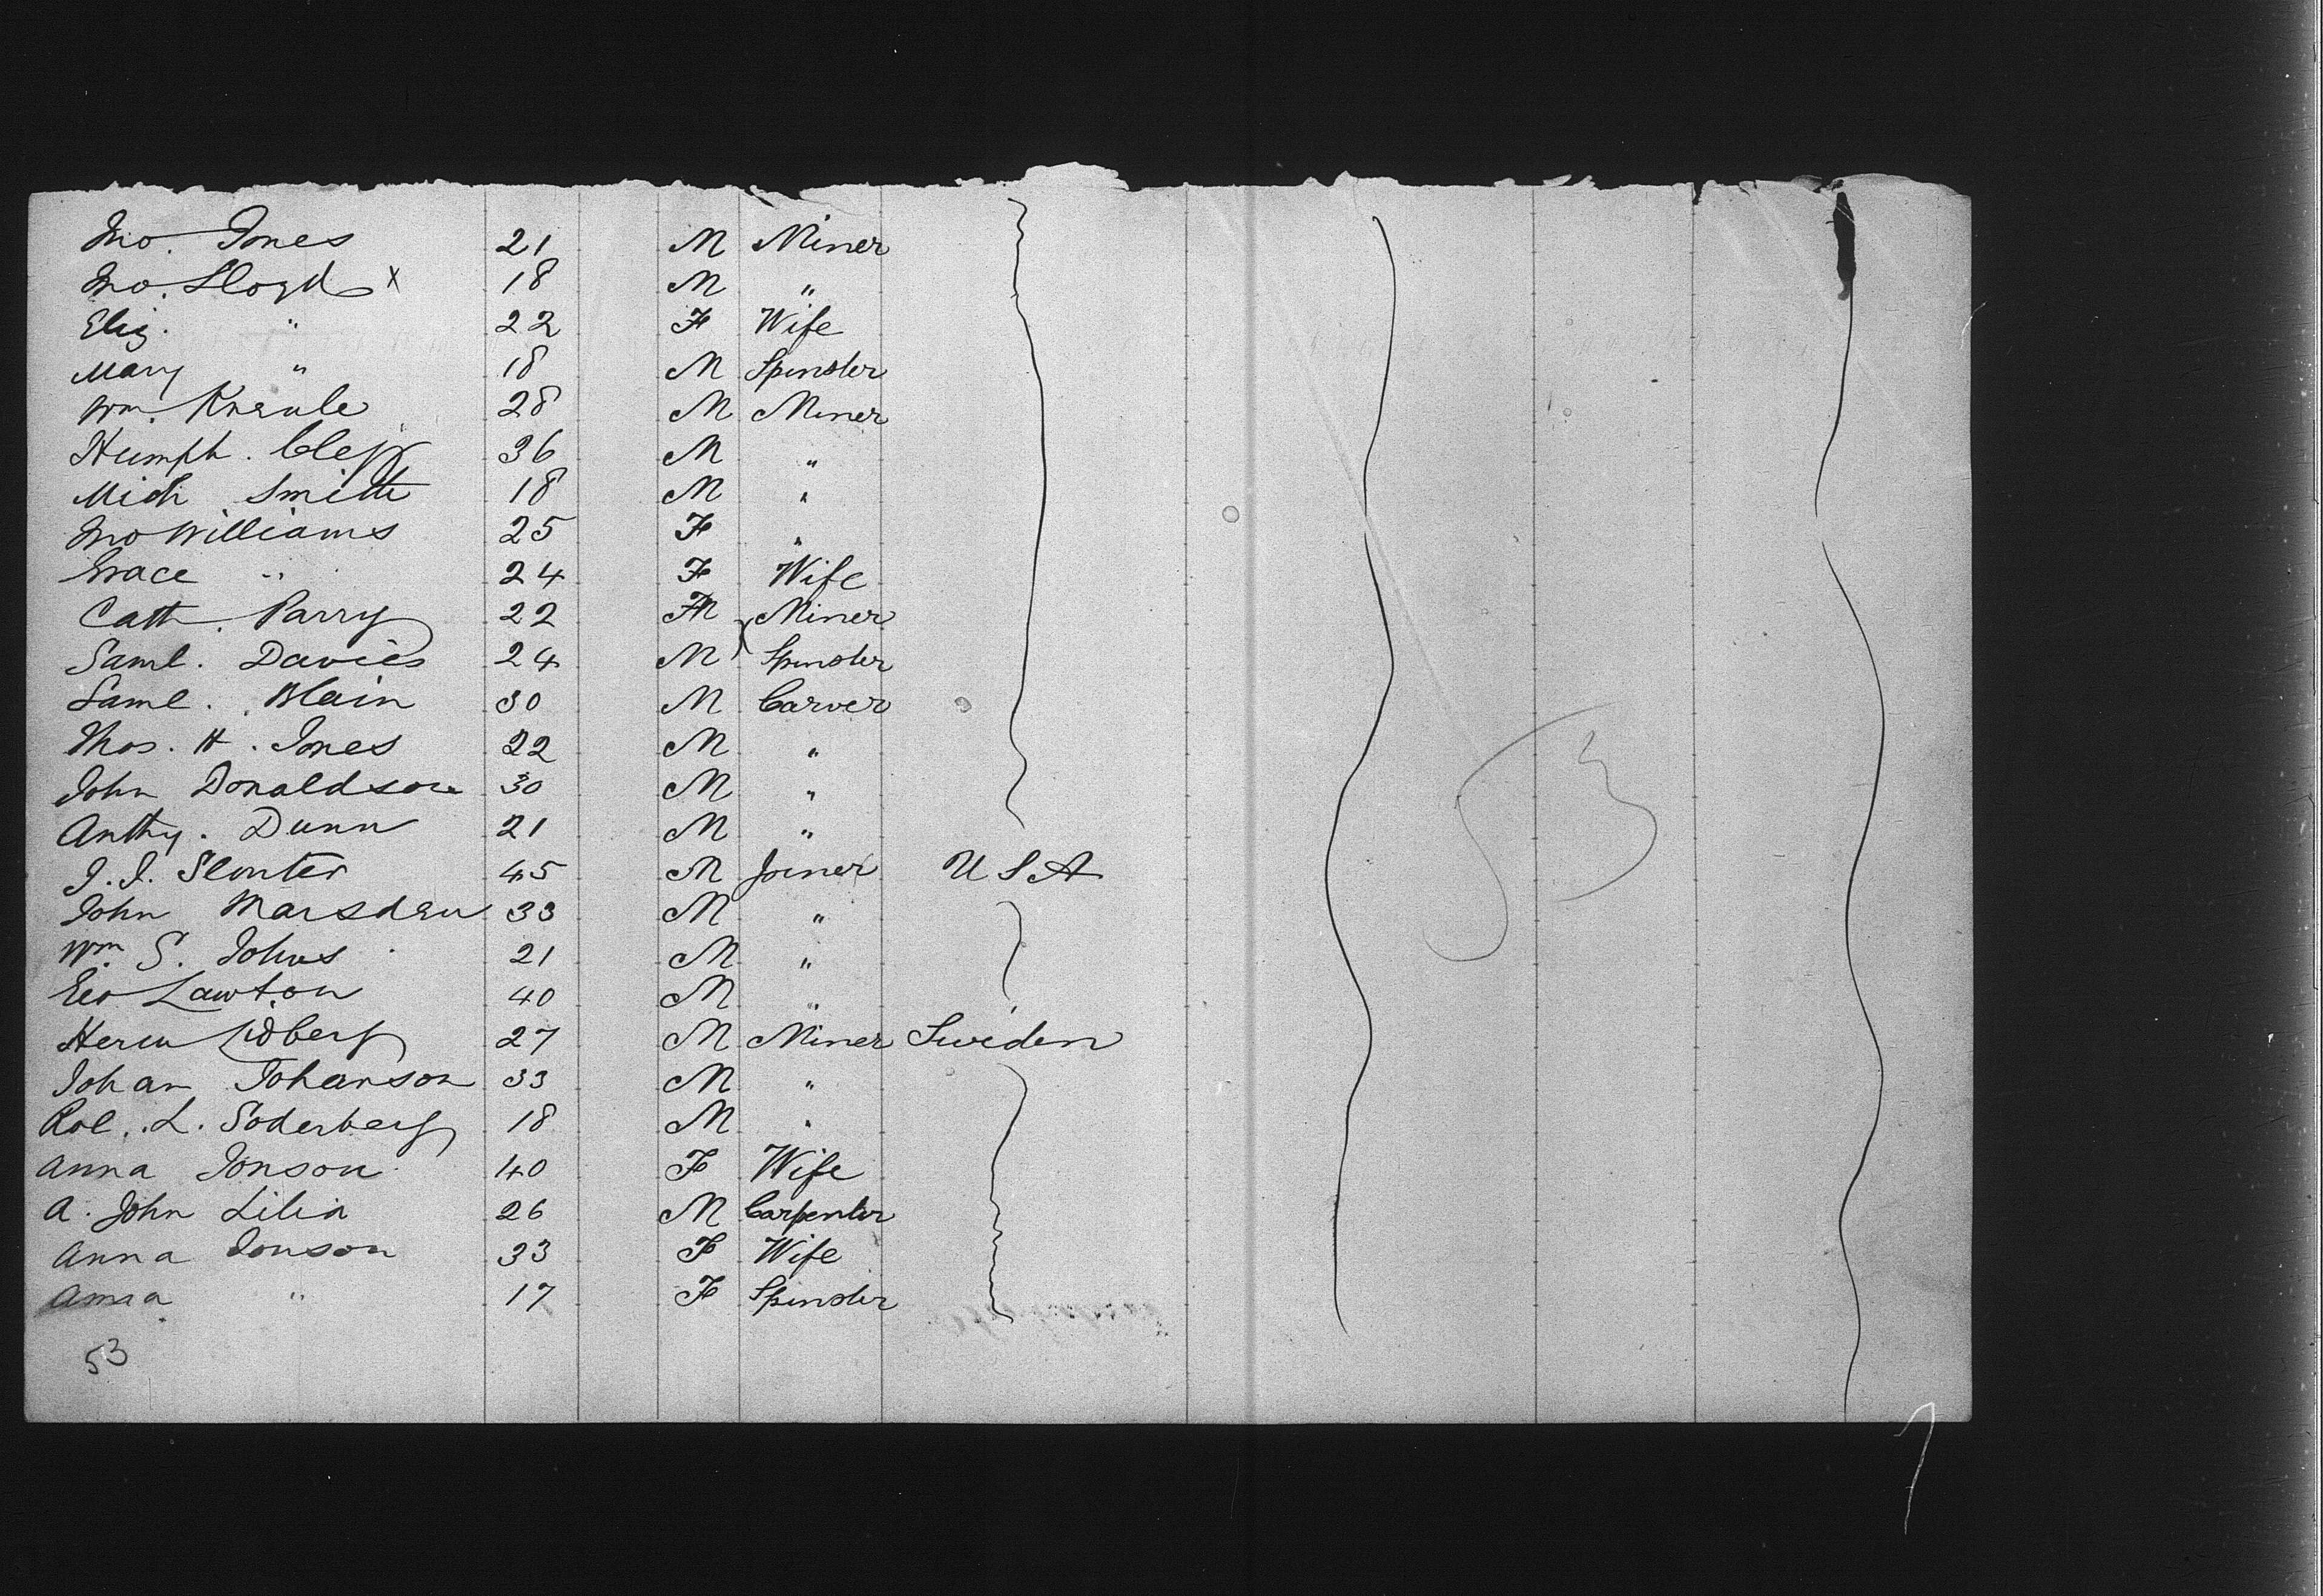 Jno. Jones 21 M Miner
Jno. Lloyd x 18 M "
Eliz. " 22 F Wife
Mary " 18 M Spinster
Wm. 28 M Miner
Humph. Clegg 36 M "
Mich Smith 18 M "
Jno Williams 25 F "
Grace " 24 F Wife
Cath. Parry 22 Miner
Saml. Davies 24 M Spinster
Saml. Blain 30 M Carver
Thos. H. Jones 22 M "
John Donaldson 30 M "
Anthy. Dunn 21 M "
J. J. 45 M Joiner U S A
John Marsden 33 M "
Wm. S. Johns 21 M "
Geo Lawton 40 M "
27 M Miner Sweden
Johan Johanson 33 M "
L. Soderberg 18 M "
Anna Jonson 40 F Wife
A. John Lilia 26 M Carpenter
Anna Jonson 33 F Wife
" 17 F Spinster
53